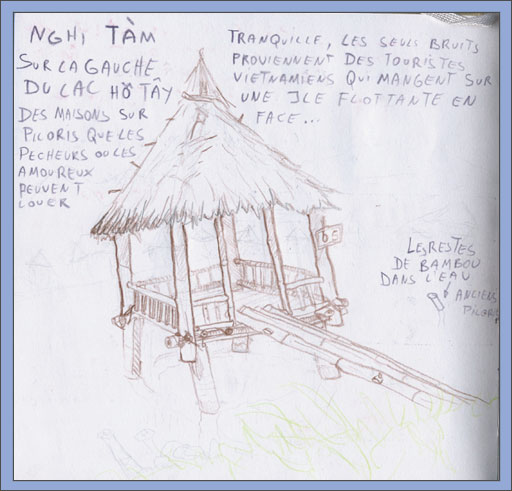 NGHI TÀM
SUR LA GAUCHE
DU LAC HỒ TÂY
DES MAISONS SUR
PILORIS QUE LES
PECHEURS OU LES
AMOUREUX
PEUVENT
LOUER
TRANQUILLE, LES SEULS BRUITS
PROVIENNENT DES TOURISTES
VIETNAMIENS QUI MANGENT SUR
UNE ILE FLOTTANTE EN
FACE...
b5
LES RESTES
DE BAMBOU
DANS L'EAU
ANCIENS
PILORIS